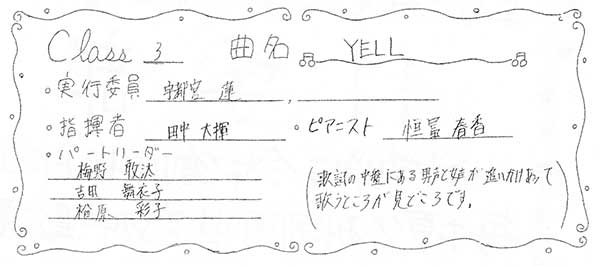 Class 3 曲名 YELL
・実行委員 宇都宮 蓮 ,
・指揮者 田中 大揮 ・ピアニスト 恒冨 春香
・パートリーダー
梅野 敢汰
吉田 舞衣子
柗原 彩子
(歌詞の中盤にある男声と女声が追いかけあって
歌うところが見どころです。)